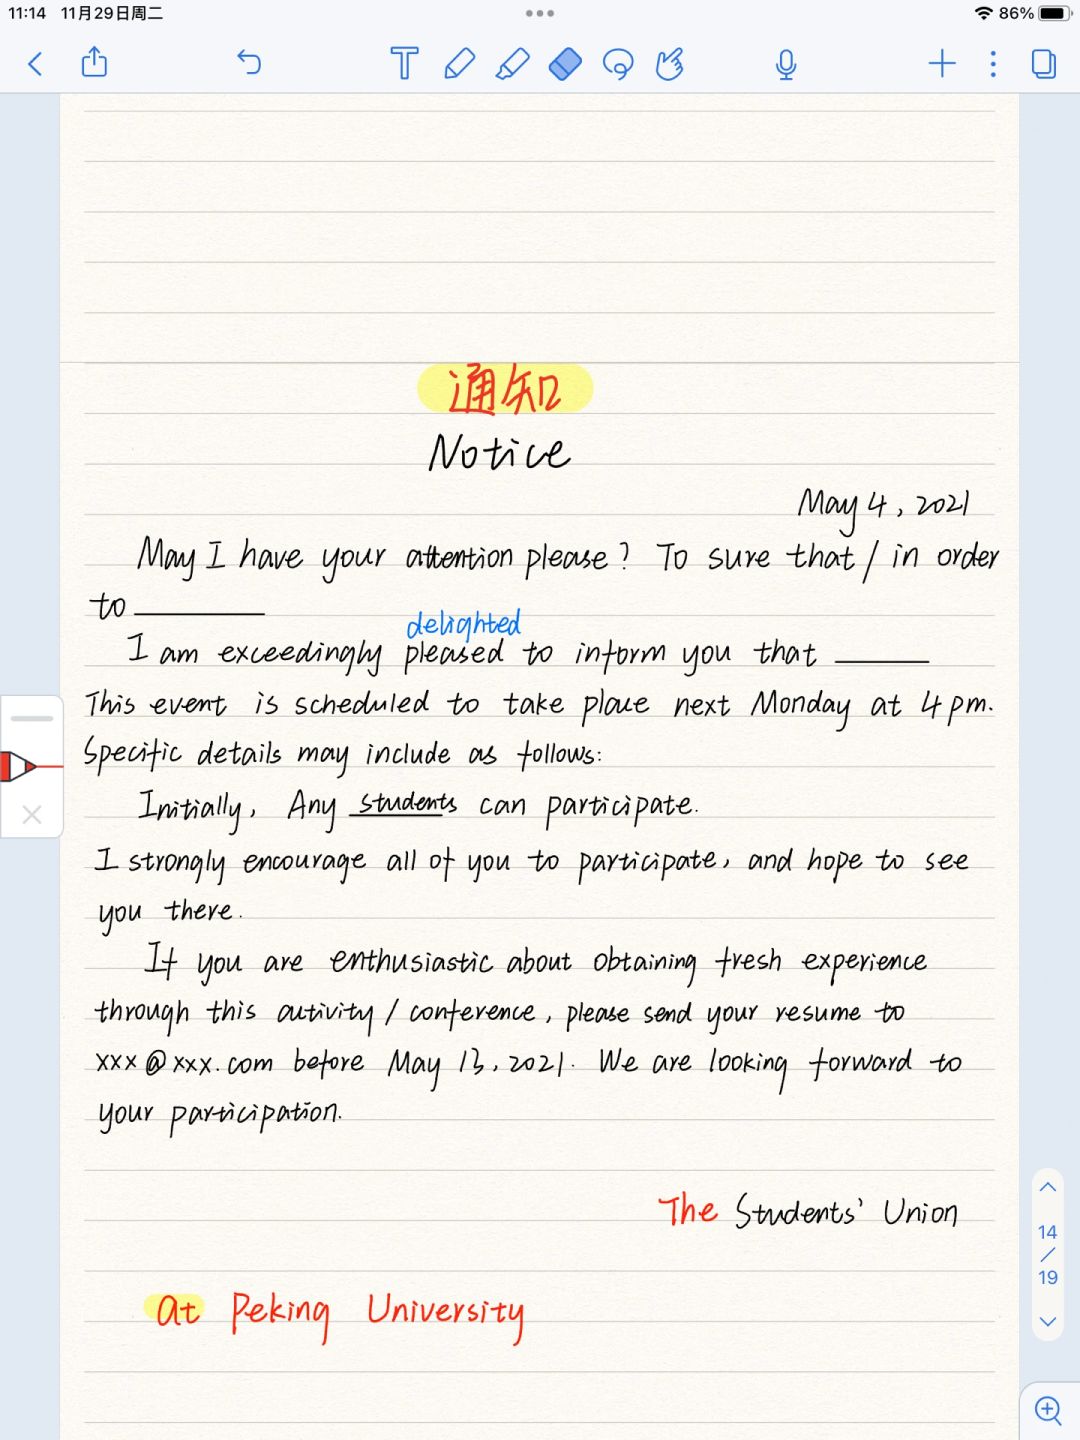 11:14 11月29日周二
86%
通知
Notice
May 4, 2021
May I have your attention please? To sure that / in order
to
delighted
I am exceedingly pleased to inform you that
This event is scheduled to take place next Monday at 4 pm.
Specific details may include as follows:
Initially, Any students can participate.
I strongly encourage all of you to participate, and hope to see
you there.
If you are enthusiastic about obtaining fresh experience
through this activity / conference, please send your resume to
xxx@xxx.com before May 13, 2021. We are looking forward to
your participation.
The Students' Union
at Peking University
14
/
19